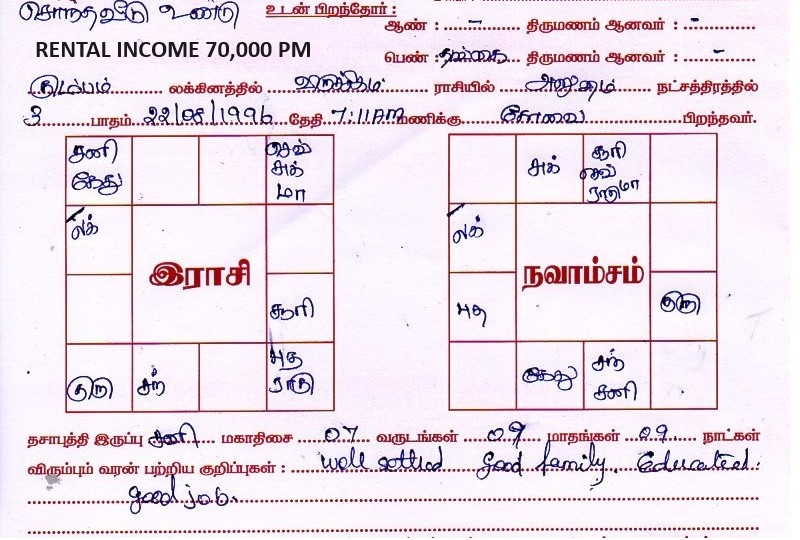 சொந்தவீடு உண்டு உடன் பிறந்தோர் :
ஆண் : - திருமணம் ஆனவர் : -
RENTAL INCOME 70,000 PM
பெண் : தங்கை திருமணம் ஆனவர் : -
கும்பம் லக்கினத்தில் விருச்சிகம் ராசியில் அனுஷம் நட்சத்திரத்தில்
3 பாதம் 22/08/1996 தேதி 7:11AM மணிக்கு கோவை பிறந்தவர்.
சனி கேது
செவ் சுக் மா
லக்
இராசி
சூரி
குரு
சந்
புத ராகு
சுக்
சூரி செவ் ராகு மா
லக்
நவாம்சம்
புத
குரு
கேது
சந் சனி
தசாபுத்தி இருப்பு சனி மகாதிசை 07 வருடங்கள் 09 மாதங்கள் 09 நாட்கள்
விரும்பும் வரன் பற்றிய குறிப்புகள் : well settled good family. Educated.
good job.